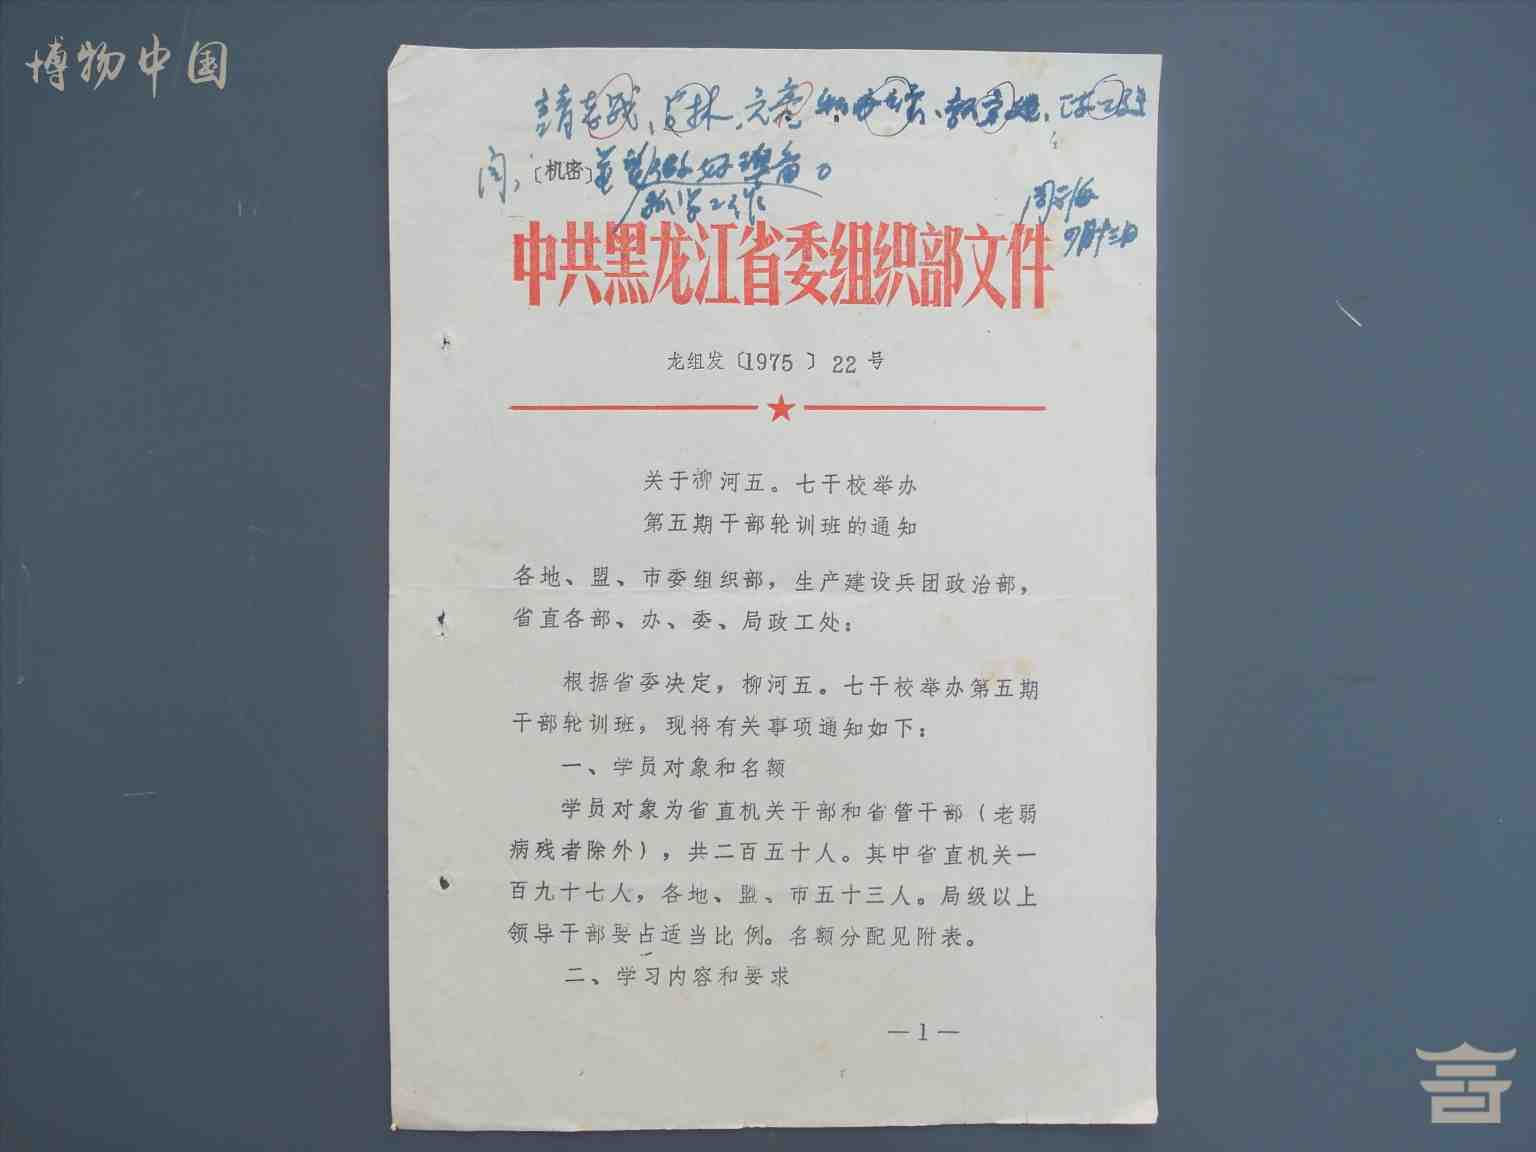 博物中国
〔机密〕
做好准备。
四月十三日
中共黑龙江省委组织部文件
龙组发〔1975〕22号
关于柳河五。七干校举办
第五期干部轮训班的通知
各地、盟、市委组织部，生产建设兵团政治部，
省直各部、办、委、局政工处：
根据省委决定，柳河五。七干校举办第五期
干部轮训班，现将有关事项通知如下：
一、学员对象和名额
学员对象为省直机关干部和省管干部（老弱
病残者除外），共二百五十人。其中省直机关一
百九十七人，各地、盟、市五十三人。局级以上
领导干部要占适当比例。名额分配见附表。
二、学习内容和要求
—1—